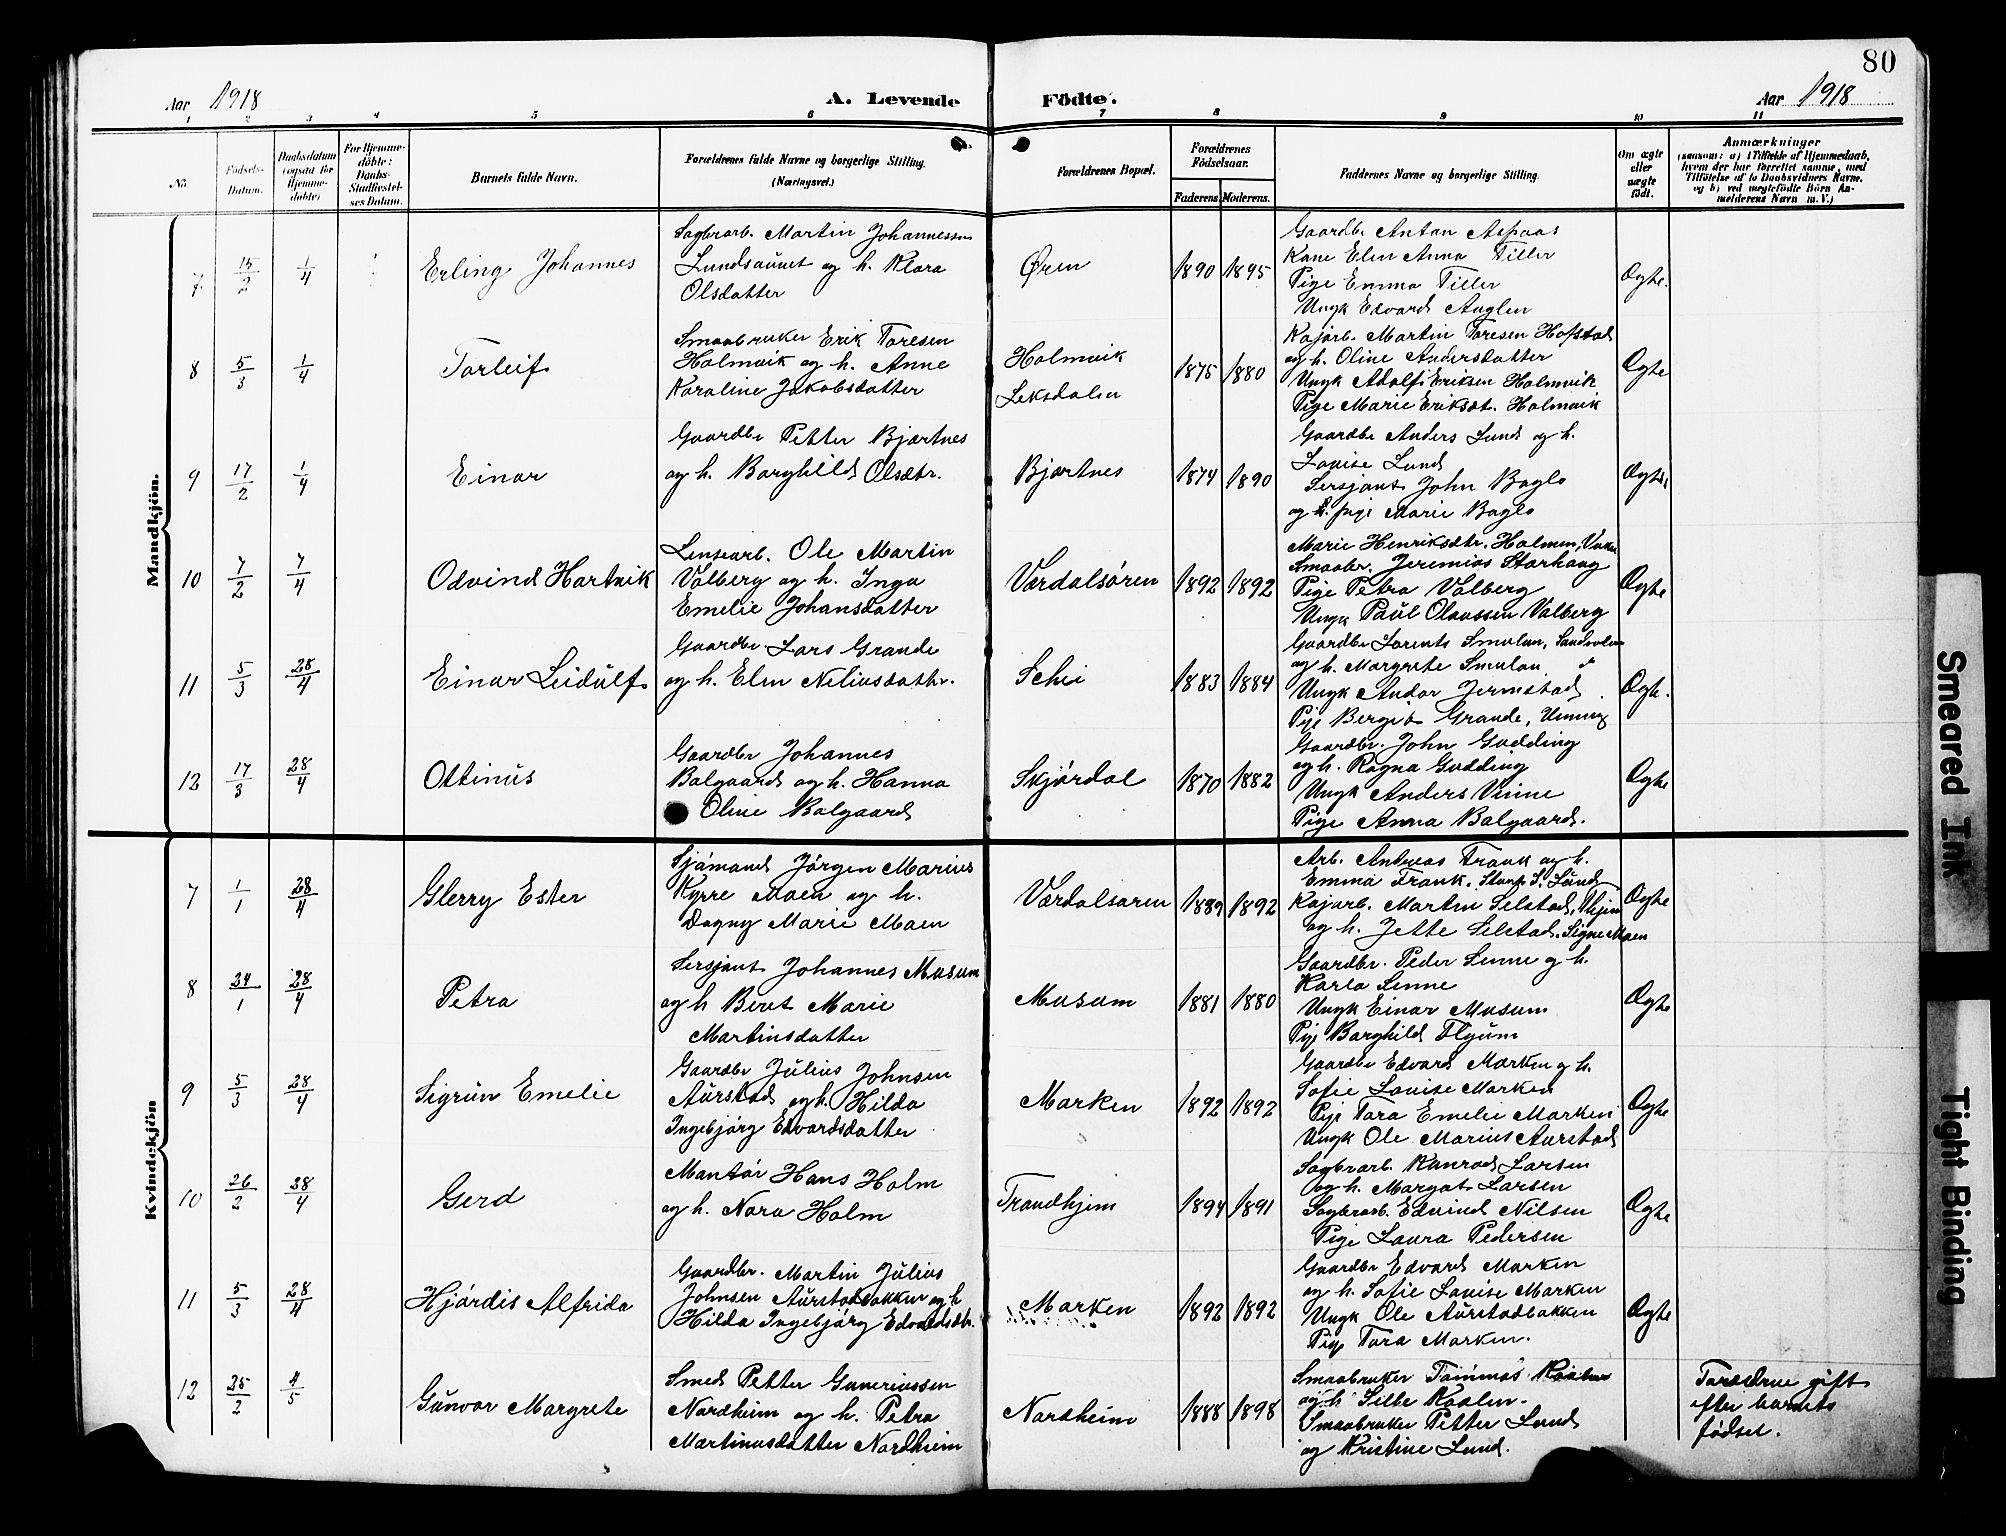 80
Aar 1918
A. Levende Födte.
Aar 1918
1 2 3 4 5 6 7 8 9 10 11
No.
Födsels-
Datum.
Daabsdatum
(ogsaa for
Hjemme-
döbte)
For Hjemme-
döbte:
Daabs-
Stadfæstel-
ses Datum.
Barnets fulde Navn.
Forældrenes fulde Navne og borgerlige Stilling.
(Næringsvei.)
Forældrenes Bopæl.
Forældrenes
Födselsaar.
Faderens Moderens.
Faddernes Navne og borgerlige Stilling.
Om ægte
eller
uægte
födt.
Anmærkninger
(saasom: a) i Tilfælde af Hjemmedaab,
hvem der har forrettet samme, med
Tilföielse af to Daabsvidners Navne.
og b) ved uægtefödte Börn An-
melderens Navn m. V.)
Mandkjön.
7
15/2
1/4
Erling Johannes
Sagbrarb. Martin Johannessen
Lundsaunet og h. Klara
Olsdatter
Øren
1890 1895
Gaardbr Anton Aspaas
Kone Elen Anna Tiller
Pige Emma Tiller
Ungk Edvard Auglen
Ægte.
8
5/3
1/4
Torleif
Smaabruker Erik Toresen
Holmvik og h. Anne
Karoline Jakobsdatter
Holmvik
Leksdalen
1875 1880
Kajarb. Martin Toresen Hofstad
og h. Oline Andersdatter
Ungk Adolf Eriksen Holmvik
Pige Marie Eriksdt. Holmvik
Ægte
9
17/2
1/4
Einar
Gaardbr Petter Bjartnes
og h. Borghild Olsdtr.
Bjartnes
1874 1890
Gaardbr Anders Lund og h.
Lovise Lund
Sersjant John Baglo
og pige Marie Baglo
Ægte
10
7/2
7/4
Odvind Hartvik
Lensearb. Ole Martin
Valberg og h. Inga
Emelie Johansdatter
Værdalsøren
1892 1892
Marie Henriksdtr. Holmen,
Smaabr. Jeremias Storhaug
Pige Petra Valberg
Ungk Paul Olaussen Valberg
Ægte
11
5/3
28/4
Einar Leidulf
Gaardbr Lars Grande
og h. Elen Neliusdattr.
Schei
1883 1884
Gaardbr Lorents Smulan,
og h. Margrete Smulan
Ungk Andor Jermstad
Pige Bergit Grande,
Ægte.
12
17/3
28/4
Ottinus
Gaardbr Johannes
Balgaard og h. Hanna
Oline Balgaard
Skjørdal
1870 1882
Gaardbr. John Gudding
og h. Ragna Gudding
Ungk Anders Vinne
Pige Anna Balgaard.
Ægte
Kvindekjön
7
1/1
28/4
Glerry Ester
Sjømand Jørgen Marius
Kyrre Moen og h.
Dagny Marie Moen
Værdalsøren
1889 1892
Arb. Andreas Frank og h.
Emma Frank. S. Lund
Kajarb. Martin Selstad,
og h. Jette Selstad. Signe Moen
Ægte
8
24/1
28/4
Petra
Sersjant Johannes Musum
og h Beret Marie
Martinsdatter
Musum
1881 1880
Gaardbr. Peder Senne og h.
Karla Senne
Ungk Einar Musum
Pige Borghild Flyum
Ægte
9
5/3
28/4
Sigrun Emelie
Gaardbr Julius Johnsen
Aurstad og h. Hilda
Ingebjørg Edvardsdatter
Marken
1892 1892
Gaardbr Edvard Marken og h.
Sofie Lovise Marken
Pige Tora Emelie Marken
Ungk Ole Marius Aurstad
Ægte
10
26/2
28/4
Gerd
Montør Hans Holm
og h. Nora Holm
Trondhjem
1894 1891
Sagbrarb. Konrad Larsen
og h. Margot Larsen
Sagbrarb. Edvind Nilsen
Pige Laura Pedersen
Ægte
11
5/3
28/4
Hjørdis Alfrida
Gaardbr. Martin Julius
Johnsen Aurstadbakken og h
Hilda Ingebjørg Edvardsdtr.
Marken
1892 1892
Gaardbr Edvard Marken
og h. Sofie Lovise Marken
Ungk Ole Aurstadbakken
Pige Tora Marken.
Ægte
12
25/2
4/5
Gunvor Margrete
Smed Petter Guneriussen
Nordheim og h. Petra
Martinusdatter Nordheim
Nordheim
1888 1898
Smaabruker Tommas
og h Kaalen.
Smaabruker Petter Lund
og Kristine Lund.
Foræeldrene gift
efter barnets
fødsel.
Smeared Ink
Tight Binding